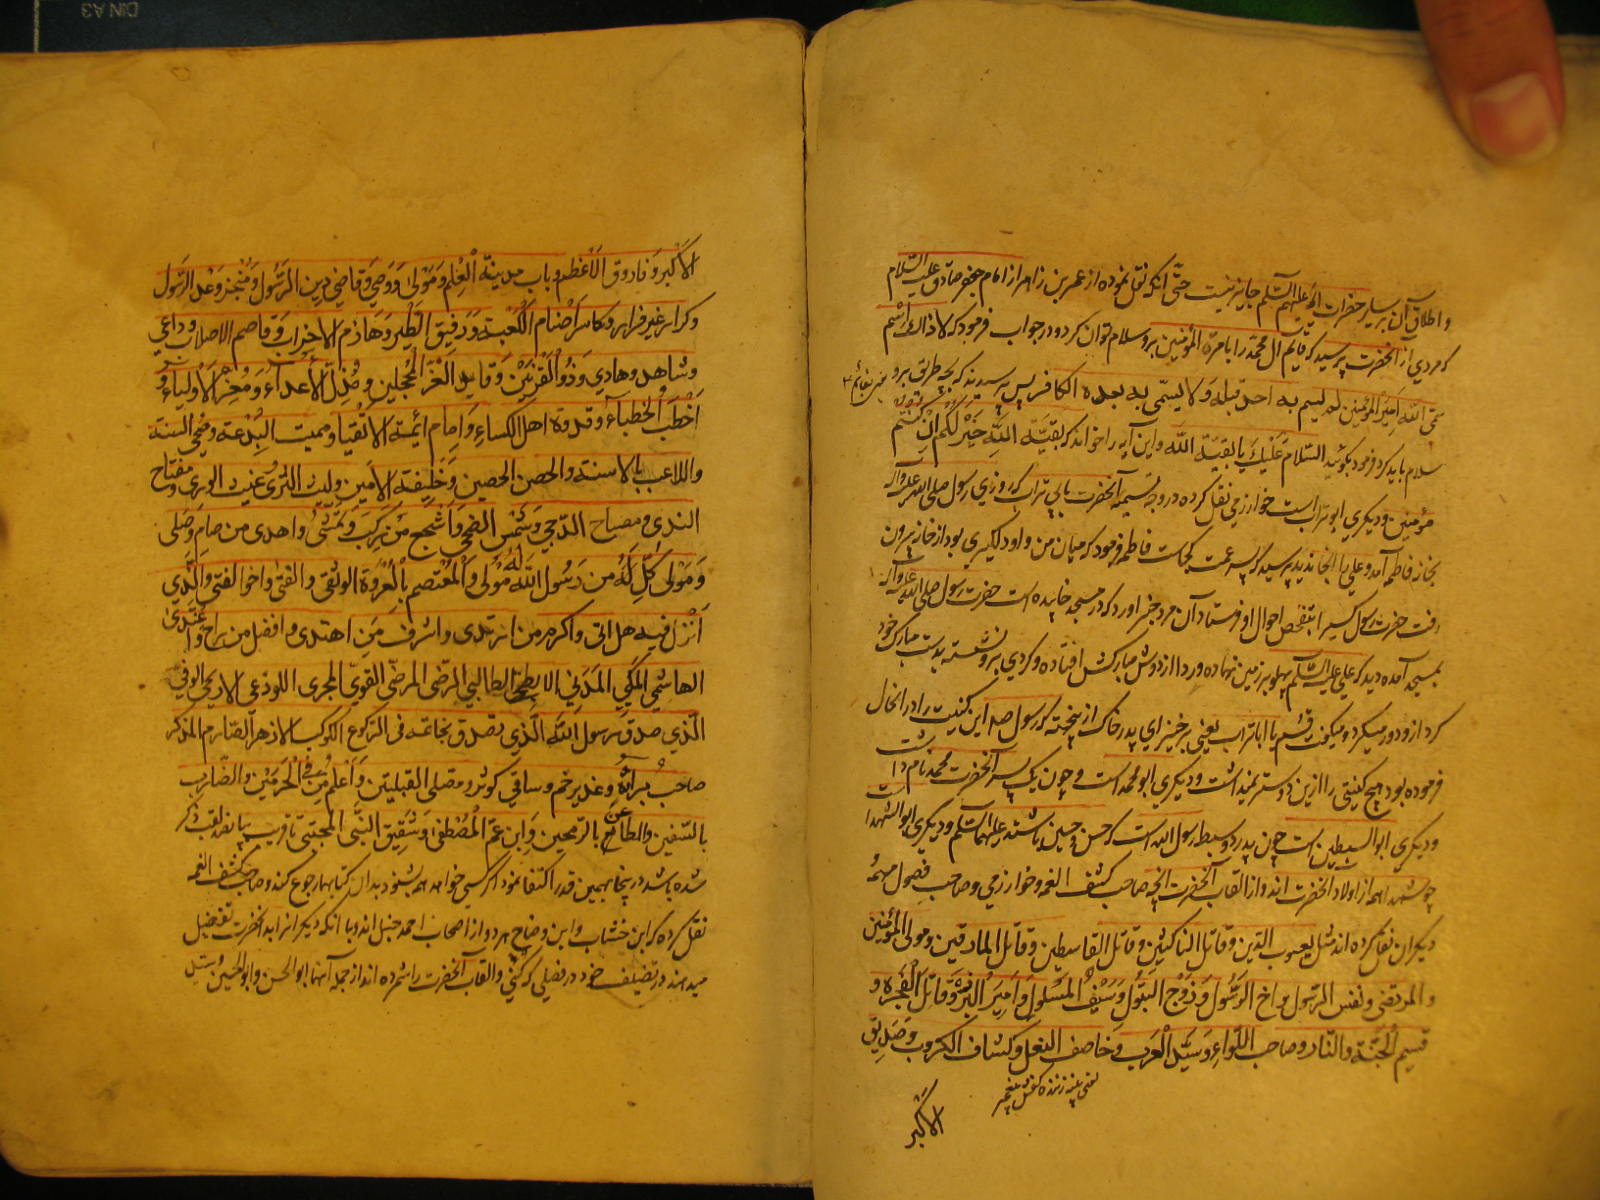 و اطلاق آن بر سایر حضرات ائمه علیهم السلم جایز نیست حتی آنکه نقل نموده از عمر بن زاهر از امام جعفر صادق علیه السلام
که مردی از آنحضرت پرسید که قایم ال محمد را بامرة المؤمنین برو سلام توان کرد و در جواب فرمود که لا ذاک اسم
سمی الله امیر المؤمنین لم یسم به احد قبله و لا یسمی به بعده الا کافر پس پرسیدند که بچه طریق برو
سلام باید کرد فرمود بگوئید السلام علیک یا بقیة الله و این آیه را خواند که بقیة الله خیر لکم ان کنتم
مؤمنین و دیگری ابو تراب است خوارزمی نقل کرده در وجه تسمیه آنحضرت بابی تراب که روزی رسول صلی الله علیه و آله
بخانه فاطمه آمد و علی را آنجا ندید پرسید که پسر عمت کجاست فاطمه فرمود که میان من و او دلگیری بود از خانه بیرون
رفت حضرت رسول کسیرا بتفحص احوال او فرستاد آن مرد خبر اورد که در مسجد خابیده است حضرت رسول صلی الله علیه و آله
بمسجد آمده دید که علی علیه السلم پهلو بر زمین نهاده و ردا از دوش مبارکش افتاده و گردی برو نشسته بدست مبارک خود
گرد ازو دور میکرد و میکفت قم یا ابا تراب یعنی برخیز ای پدر خاک ازینجهة که رسول صلعم این کنیت را در انحال
فرموده بود هیچ کنیتی را ازین دوستر نمیداشت و دیگری ابو محمد است و چون یک پسر آنحضرت محمد نام داشت
و دیگری ابو السبطین است چون پدر دو سبط رسول الله است که حسن و حسین باشند علیهما السلم و دیگری ابو الشهدا است
چو شهدا همه از اولاد آنحضرت اند و از القاب آنحضرت آنچه صاحب کشف الغمه و خوارزمی و صاحب فصول مهمه
دیگران نقل کرده اند مثل یعسوب الدین و قاتل الناکثین و قاتل القاسطین و قاتل المارقین و مولی المؤمنین
و المرتضی و نفس الرسول و اخ الرسول و زوج البتول و سیف المسلول و امیر البررة و قاتل الفجرة و
قسیم الجنة و النار و صاحب اللواء و سید العرب و خاصف النعل و کشاف الکروب و صدیق
یعنی پینه زننده کفش پیغمبر
الاکبر
الاکبر و فاروق الاعظم و باب مدینة العلم و مولی و وصی و قاضی دین الرسول و منجز وعد الرسول
و کرار غیر فرار و کاسر اصنام الکعبة و رفیق الطیر و هازم الاحزاب و قاصم الاصلاب و داعی
و شاهد و هادی و ذو القرنین و قاید الغر المحجلین و مذل الأعدآء و معز الاولیاء و
اخطب الخطبآء و قدوة اهل الکساء و امام ائمة الاتقیا و ممیت البدعة و محی السنة
و اللاعب بالاسنة و الحصن الحصین و خلیفة الامین و لیث الثری و غیث الوری و مفتاح
الندی و مصباح الدجی و شمس الضحی و اشجع من رکب و تمشی و اهدی من صام و صلی
و مولی کل له من رسول الله مولی و المعتصم بالعروة الوثقی و الفتی و اخو الفتی و الذی
انزل فیه هل اتی و اکرم من ارتدی و اشرف من اهتدی و افضل من راح و اغتدی
الهاشمی المکی المدنی الابطحی الطالبی المرضی المرضی القوی الجری اللوذعی الاریحی الوفی
الذی صدق رسول الله الذی تصدق بخاتمه فی الرکوع الکوکب الازهر الصارم المذکر
صاحب براءة و غدیر خم و ساقی کوثر و مصلی القبلتین و اعلم من فی الحرمین و الضارب
بالسیفین و الطاعن بالرمحین و ابن عم المصطفی و شقیق النبی المجتبی تا قریب بپانصد لقب ذکر
شده باشد در ینجا بهمین قدر اکتفا نمود اگر کسی خواهد همه بشنود بدان کتابها رجوع کند و صاحب کشف الغمه
نقل کرده که ابن خشاب و ابن وضاح هر دو از اصحاب احمد حنبل اند و با انکه دیگرانرا بر آنحضرت تفضیل
میدهند در تصنیف خود در فصلی که کنی و القاب آنحضرت را شمرده اند از جمله آنها ابو الحسن و ابو الحسین و
DIN A3